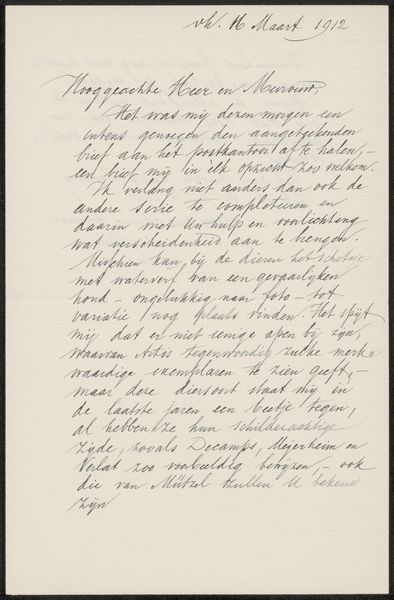 vh. 16 Maart 1912
Hooggeachte Heer en Mevrouw,
Het was mij dezen morgen een
intens genoegen den aangetekenden
brief aan het postkantoor af te halen, –
een brief mij in èlk opzicht zoo welkom.
Ik verlang niet anders dan ook de
andere serie te completeeren en
daarin met Uw hulp en voorlichting
wat verscheidenheid aan te brengen.
Misschien kan, bij de dieren het schetsje
met waterverf van een gevaarlijken
hond – ongelukkig naar foto – tot
variatie nog plaats vinden. Het spijt
mij dat er niet eenige apen bij zijn,
waarvan Artis tegenwoordig zulke merk„
waardige exemplaren te zien geeft, –
maar deze diersoort staat mij in
de laatste jaren een beetje tegen,
al hebben ze hun schilderachtige
zijde, zooals Decamps, Meyerheim en
Verlat zoo voorbeeldig bewijzen, – ook
die van Mützel zullen U bekend
zijn